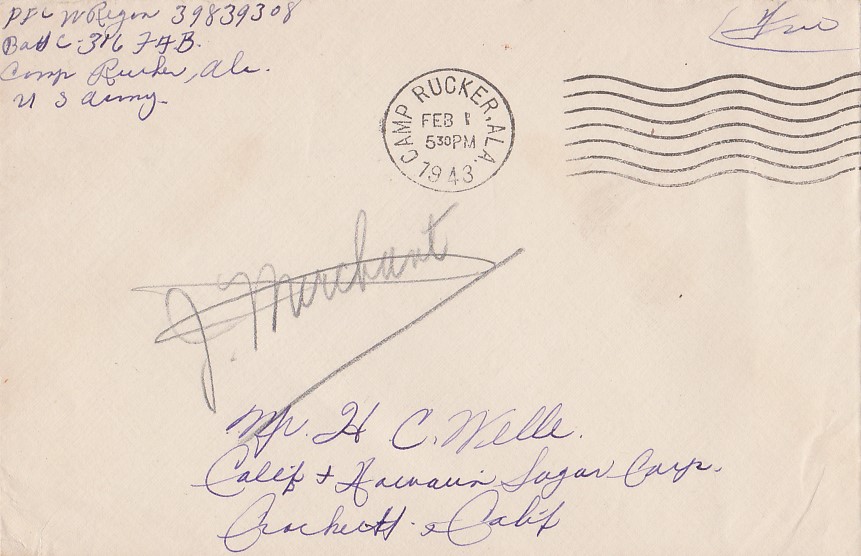 Pfc W Regan 39839308
Bat C-316 F.A.B.
Camp Rucker, Ala.
U S Army-
Free
CAMP RUCKER, ALA.
FEB 1
530PM
1943
J. Merchant
Mr. H C. Welle.
Calif + Hawaiin Sugar Corp.
Crockett - Calif